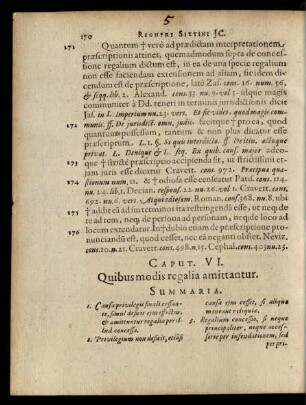 5
170 REGNERI SIXTINI JC.
171 Quantum † verò ad prædictam interpretationem,
præscriptionis attinet, quemadmodum supra de conces-
sione regalium dictum est, in ea de una specie regalium
non esse faciendam extensionem ad aliam, sic idem di-
cendum est de præscriptione, latè Zas. cons. 16. num. 56.
& seqq. lib. 2. Alexand. cons. 13. nu. 9. vol. 5. idque magis
communiter à Dd. teneri in terminis jurisdictionis dicit
Jas. in l. imperium nu. 23. vers. Et sic vides, quod magis com-
172 munis. ff. De jurisdict. omn. judic. tacitque † proca, quod
quantum possessum, tantum & non plus dicatur esse
præscriptum. L. 1. §. Si quis interdicto. ff. De itin. actuque
privat. L. Denique &
173 que † strictè præscriptio accipienda sit, ut strictissimi et-
jam juris esse dicatur Cravett. cons. 972. Præterea qua-
174 stionum num. 11. & † odiosa esse censeatur Parid. cons. 114.
nu. 24. lib. 4. Decian. respons. 22. nu. 26. vol. 1. Cravett. cons.
692. nu. 25. vers. Atqui odiosam. Roman. cons. 368. nu. 8. ubi
175 † addit ea ad sui terminos ita restringenda esse, ut neque de
re ad rem, neque de persona ad personam, neque de loco ad
176 locum extendatur. In † dubio etiam de præscriptione pto-
nunciandū est, quod censeatur esse, nec ea neganti ob est. Neviz.
cons. 10. n. 21. Cravett. cons. 498. nu. 13. Cephal. cons. 403. nu. 23.
CAPUT. VI.
Quibus modis regalia amittantur.
SUMMARIA.
1. Causa privilegii finali cessan-
te, simul desinit ejus effectus,
& amittuntur regalia per il-
lud concessa.
2. Privilegium non desinit, etiāsi
causa ejus cesset, si aliqua
maneant reliquiæ.
3. Regalium concessio, si neque
principaliter, neque acces-
soriè per infeudationem, sed
per pri-